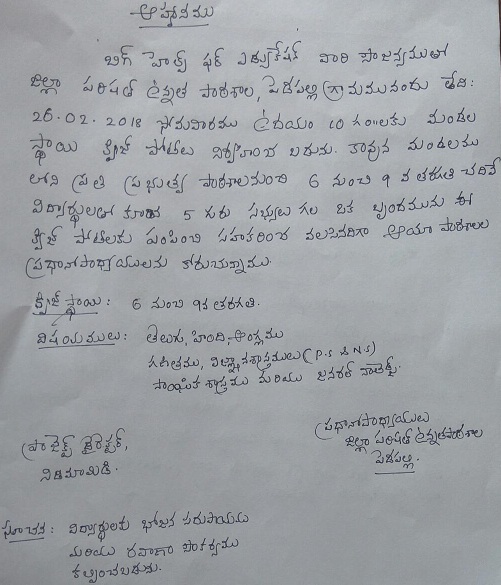 ఆహ్వానము
బిగ్ హెల్ప్ ఫర్ ఎడ్యుకేషన్ వారి సౌజన్యముతో
జిల్లా పరిషత్ ఉన్నత పాఠశాల, పెదపల్లి గ్రామమునందు తేది:
26.02.2018 సోమవారము ఉదయం 10 గంటలకు మండల
స్థాయి క్విజ్ పోటీలు నిర్వహించ బడును. కావున మండలము
లోని ప్రతి ప్రభుత్వ పాఠశాలనుంచి 6 నుంచి 9 వ తరగతి చదివే
విద్యార్థులతో కూడిన 5 గురు సభ్యులు గల ఒక బృందమును ఈ
క్విజ్ పోటీలకు పంపించి సహకరించ వలసినదిగా ఆయా పాఠశాలల
ప్రధానోపాధ్యాయులను కోరుచున్నాము.
క్విజ్ స్థాయి: 6 నుంచి 9వ తరగతి.
విషయములు: తెలుగు, హింది, ఆంగ్లము
గణితము, విజ్ఞానశాస్త్రములు (P.S & N.S)
సాంఘిక శాస్త్రము మరియు జనరల్ నాలెడ్జ్.
ప్రధానోపాధ్యాయులు
జిల్లా పరిషత్ ఉన్నతపాఠశాల
పెదపల్లి.
ప్రాజెక్ట్ డైరెక్టర్,
సూచన: విద్యార్థులకు భోజన సదుపాయము
మరియు రవాణా సౌకర్యము
కల్పించబడును.